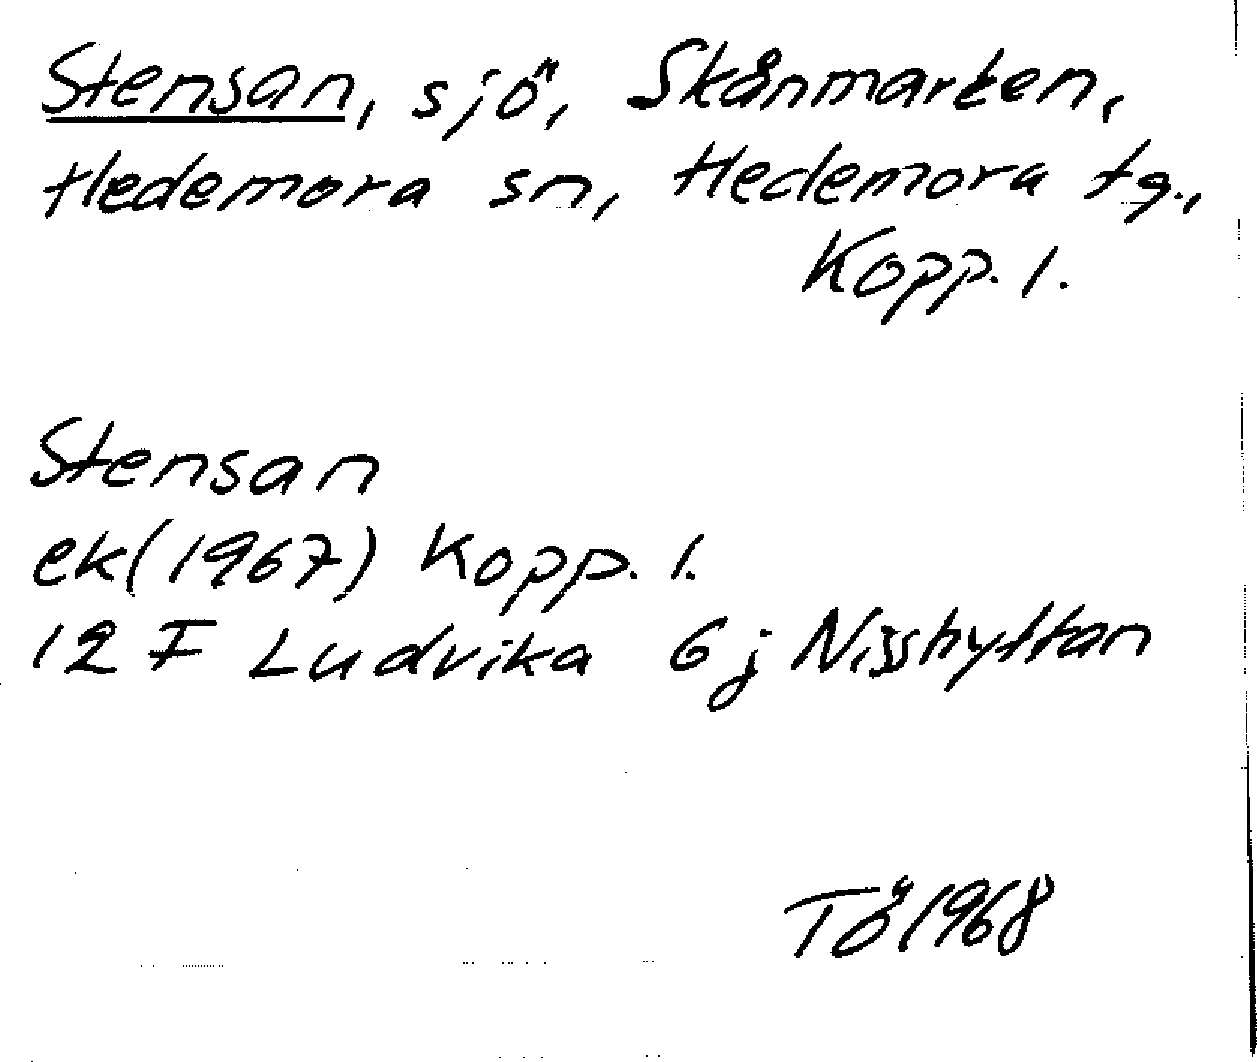 Stensan, sjö, Skånmarken,
Hedemora sn, Hedemora tg.,
Kopp. l.
Stensan
ek(1967) Kopp. l.
12 F Ludvika 6 j Nisshyttan
TÖ 1968